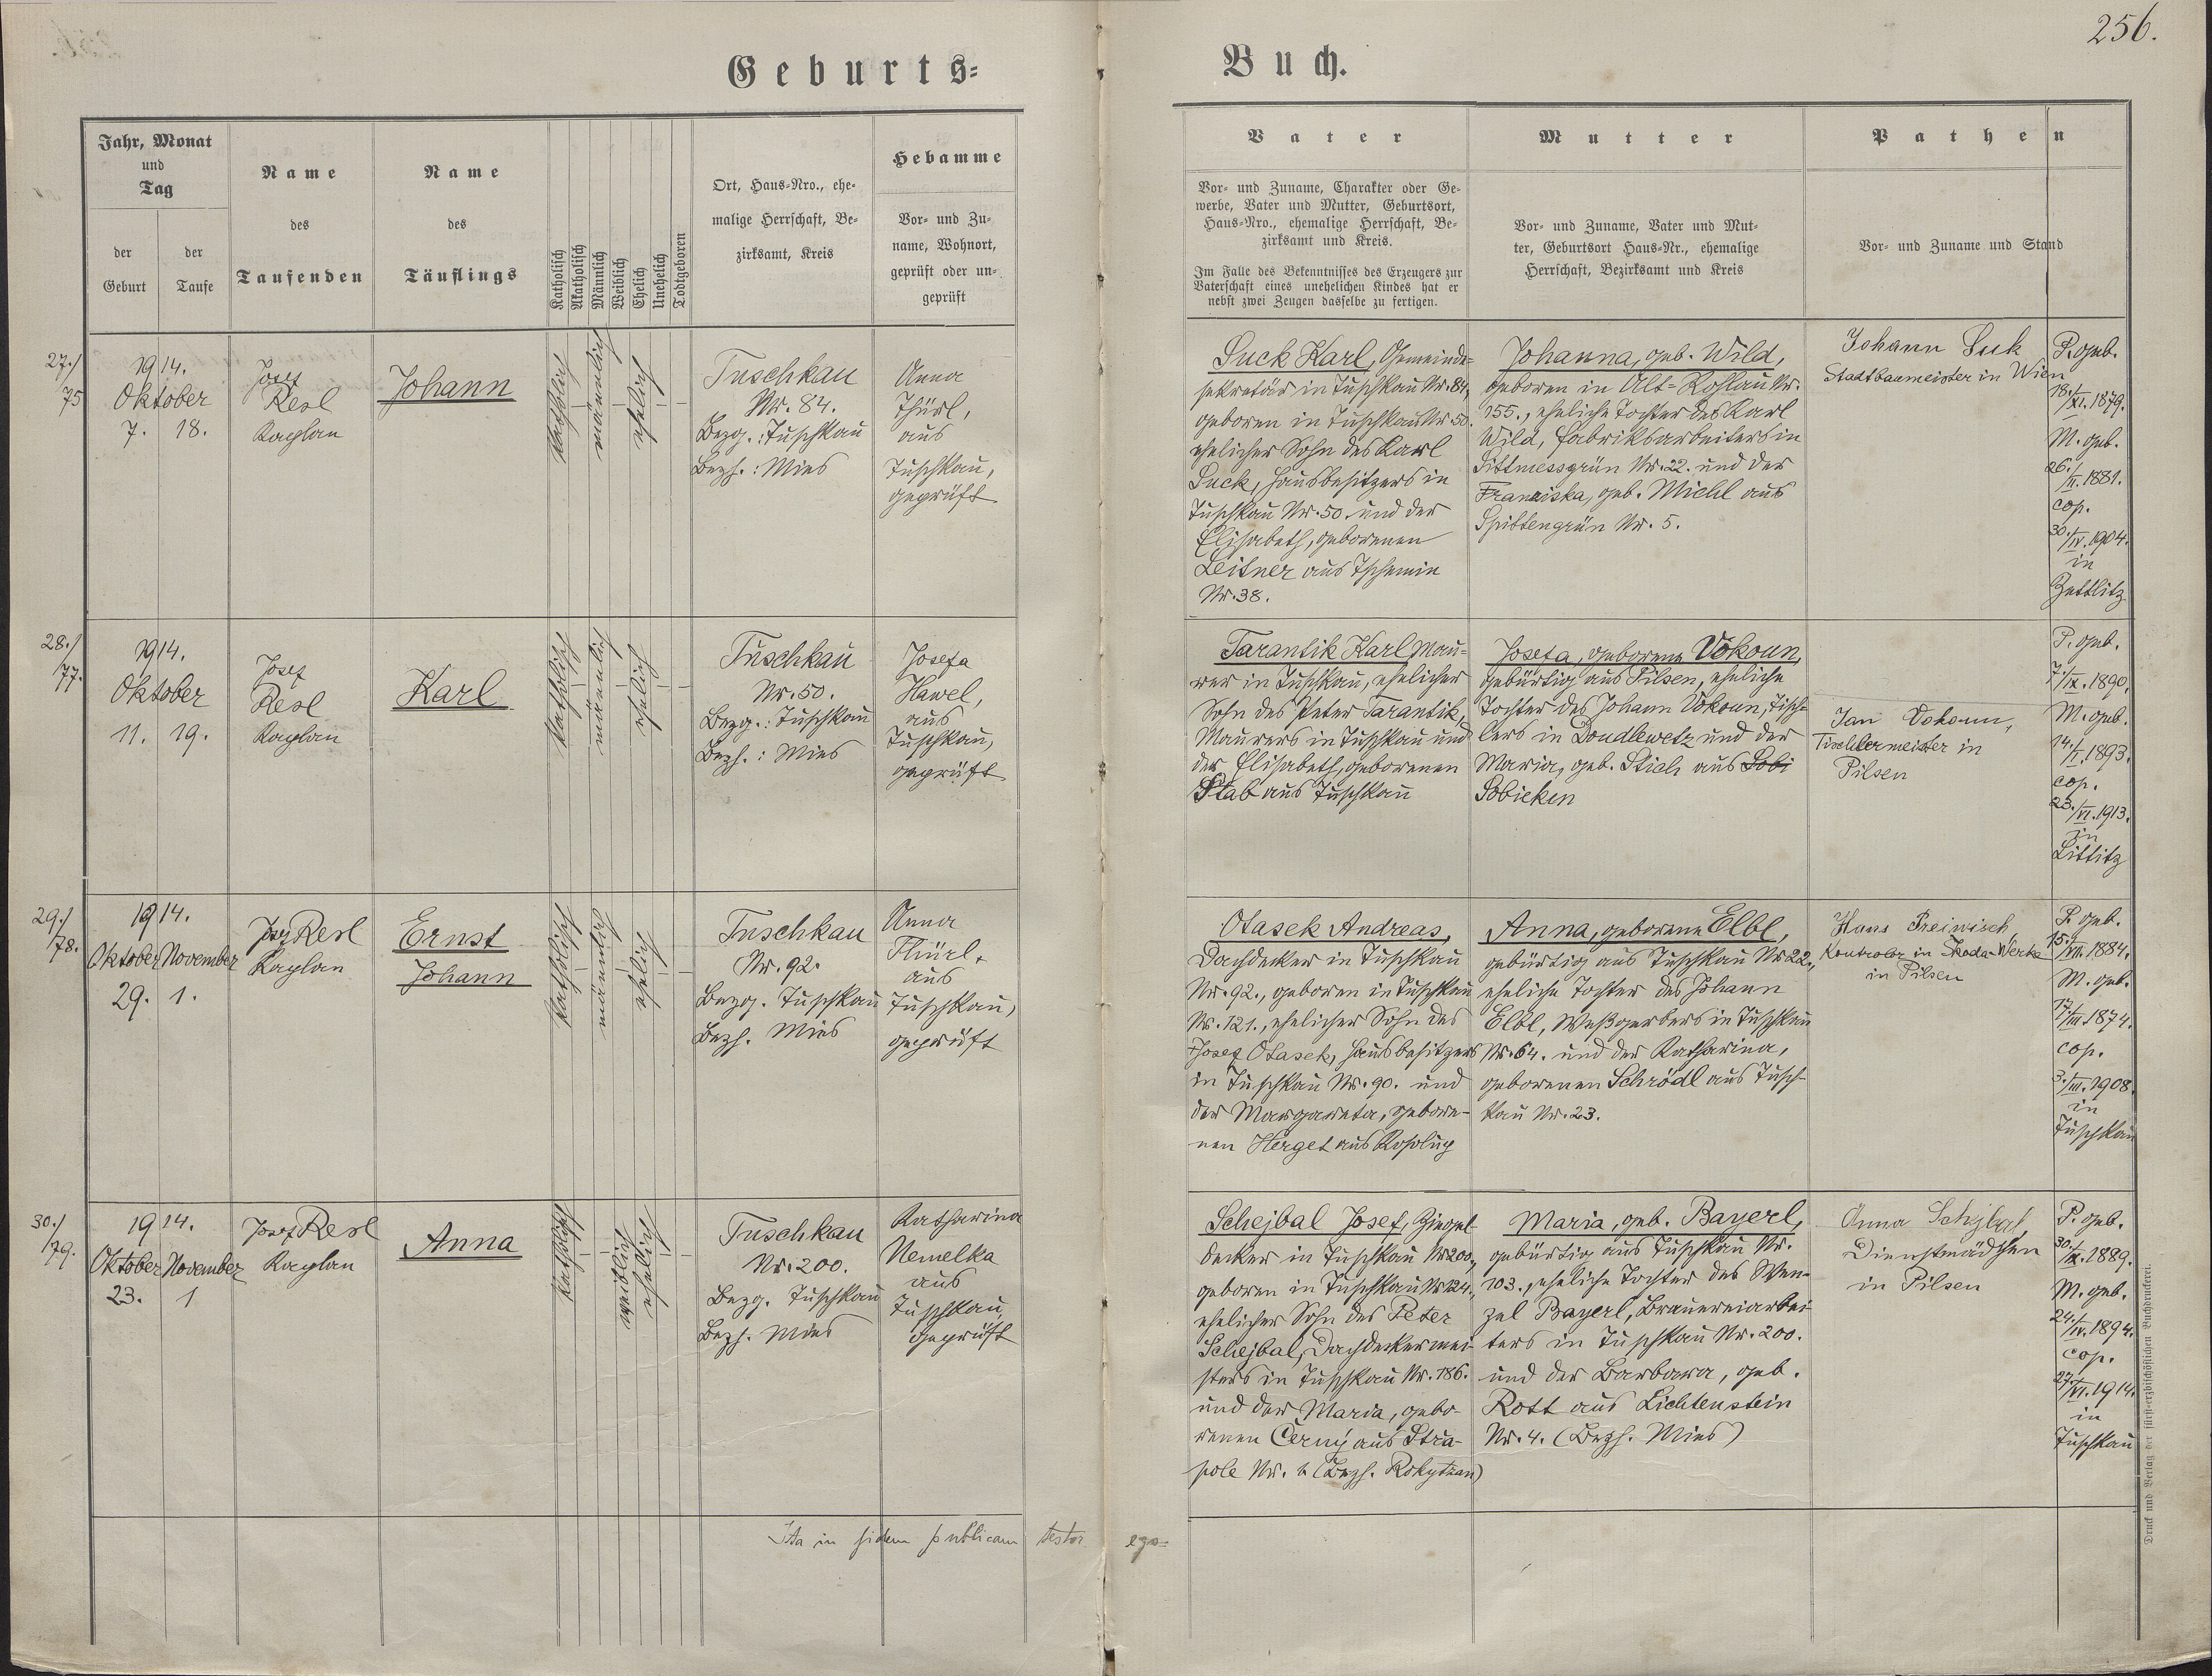 256.
Geburts=
Buch.
Jahr, Monat
und
Tag
der
Geburt
der
Taufe
Name
des
Taufenden
Name
des
Täuflings
Katholisch
Akatholisch
Männlich
Weiblich
Ehelich
Unehelich
Todtgeboren
Ort, Haus=Nro., ehe=
malige Herrschaft, Be=
zirksamt, Kreis
Hebamme
Vor= und Zu=
name, Wohnort,
geprüft oder un=
geprüft
Vater
Vor= und Zuname, Charakter oder Ge=
werbe, Vater und Mutter, Geburtsort,
Haus=Nro., ehemalige Herrschaft, Be=
zirksamt und Kreis.
Im Falle des Bekenntnisses des Erzeugers zur
Vaterschaft eines unehelichen Kindes hat er
nebst zwei Zeugen dasselbe zu fertigen.
Mutter
Vor= und Zuname, Vater und Mut=
ter, Geburtsort Haus=Nr., ehemalige
Herrschaft, Bezirksamt und Kreis
Pathen
Vor= und Zuname und Stand
27./
75
1914.
Oktober
7. 18.
Josef
Resl
Kaplan
Johann
katholisch
männlich
ehelich
Tuschkau
Nr. 84.
Bezg.: Tuschkau
Bezh.: Mies
Anna
Thürl,
aus
Tuschkau,
geprüft
Suck Karl, Gemeinde=
sekretär in Tuschkau Nr. 84,
geboren in Tuschkau Nr. 50.
ehelicher Sohn des Karl
Suck, Hausbesitzers in
Tuschkau Nr. 50. und der
Elisabeth, geborenen
Leitner aus Tschemin
Nr. 38.
Johanna, geb. Wild,
geboren in Alt=Rohlau Nr.
155., eheliche Tochter des Karl
Wild, Fabriksarbeiters in
Sittmessgrün Nr. 22. und der
Franziska, geb. Michl aus
Spittengrün Nr. 5.
Johann Suk
Stadtbaumeister in Wien
P. geb.
18./XI. 1879.
M. geb.
26./II. 1881.
cop.
30./IV. 1904.
in
Zettlitz
28./
77.
1914.
Oktober
11. 19.
Josef
Resl
Kaplan
Karl
katholisch
männlich
ehelich
Tuschkau
Nr. 50.
Bezg.: Tuschkau
Bezh.: Mies
Josefa
Hawel,
aus
Tuschkau,
geprüft
Tarantik Karl Mau=
rer in Tuschkau, ehelicher
Sohn des Peter Tarantik,
Maurers in Tuschkau und
der Elisabeth, geborenen
Stab aus Tuschkau
Josefa, geborene Vokoun,
gebürtig aus Pilsen, eheliche
Tochter des Johann Vokoun, Tisch=
lers in Doudlewetz und der
Maria, geb. Stich aus Sobi
Sobieken
Jan Vokoun,
Tischlermeister in
Pilsen
P. geb.
7./IX. 1890.
M. geb.
14./I. 1893.
cop.
23./VI. 1913.
in
Littitz
29./
78.
1914.
Oktober November
29. 1.
Josef Resl
Kaplan
Ernst
Johann
katholisch
männlich
ehelich
Tuschkau
Nr. 92.
Bezg. Tuschkau
Bezh. Mies
Anna
Thürl,
aus
Tuschkau,
geprüft
Otasek Andreas,
Dachdecker in Tuschkau
Nr. 92., geboren in Tuschkau
Nr. 121., ehelicher Sohn des
Josef Otasek, Hausbesitzers
in Tuschkau Nr. 90. und
der Margareta, gebore=
nen Herget aus
Anna, geborene Elbl,
gebürtig aus Tuschkau Nr 22.,
eheliche Tochter des Johann
Elbl, Weißgerbers in Tuschkau
Nr. 64. und der Katharina,
geborenen Schrödl aus Tusch=
kau Nr. 23.
Hans Preiwisch,
Kontrolor in Skoda-Werke
in Pilsen
P. geb.
15./VII. 1884.
M. geb.
17./III. 1874.
cop.
3./III. 1908.
in
Tuschkau
30./
79.
1914.
Oktober November
23. 1
Josef Resl
Kaplan
Anna
katholisch
weiblich
ehelich
Tuschkau
Nr. 200.
Bezg. Tuschkau
Bezh. Mies
Katharina
Nemelka
aus
Tuschkau,
geprüft
Schejbal Josef, Ziegel=
decker in Tuschkau Nr 200.,
geboren in Tuschkau Nr 124.,
ehelicher Sohn des Peter
Schejbal, Dachdeckermei=
sters in Tuschkau Nr. 186.
und der Maria, gebo=
renen Černý aus Stra=
pole Nr. (Bezh. Rokytzan)
Maria, geb. Bayerl,
gebürtig aus Tuschkau Nr.
103., eheliche Tochter des Wen=
zel Bayerl, Brauereiarbei=
ters in Tuschkau Nr. 200.
und der Barbara, geb.
Rott aus Lichtenstein
Nr. 4. (Bezh. Mies)
Anna Schejbal,
Dienstmädchen
in Pilsen
P. geb.
30./IX. 1889.
M. geb.
24./IV. 1894.
cop.
27./VI. 1914.
in
Tuschkau
Ita in fidem publicam testor ego=
Druck und Verlag der fürst-erzbischöflichen Buchdruckerei.